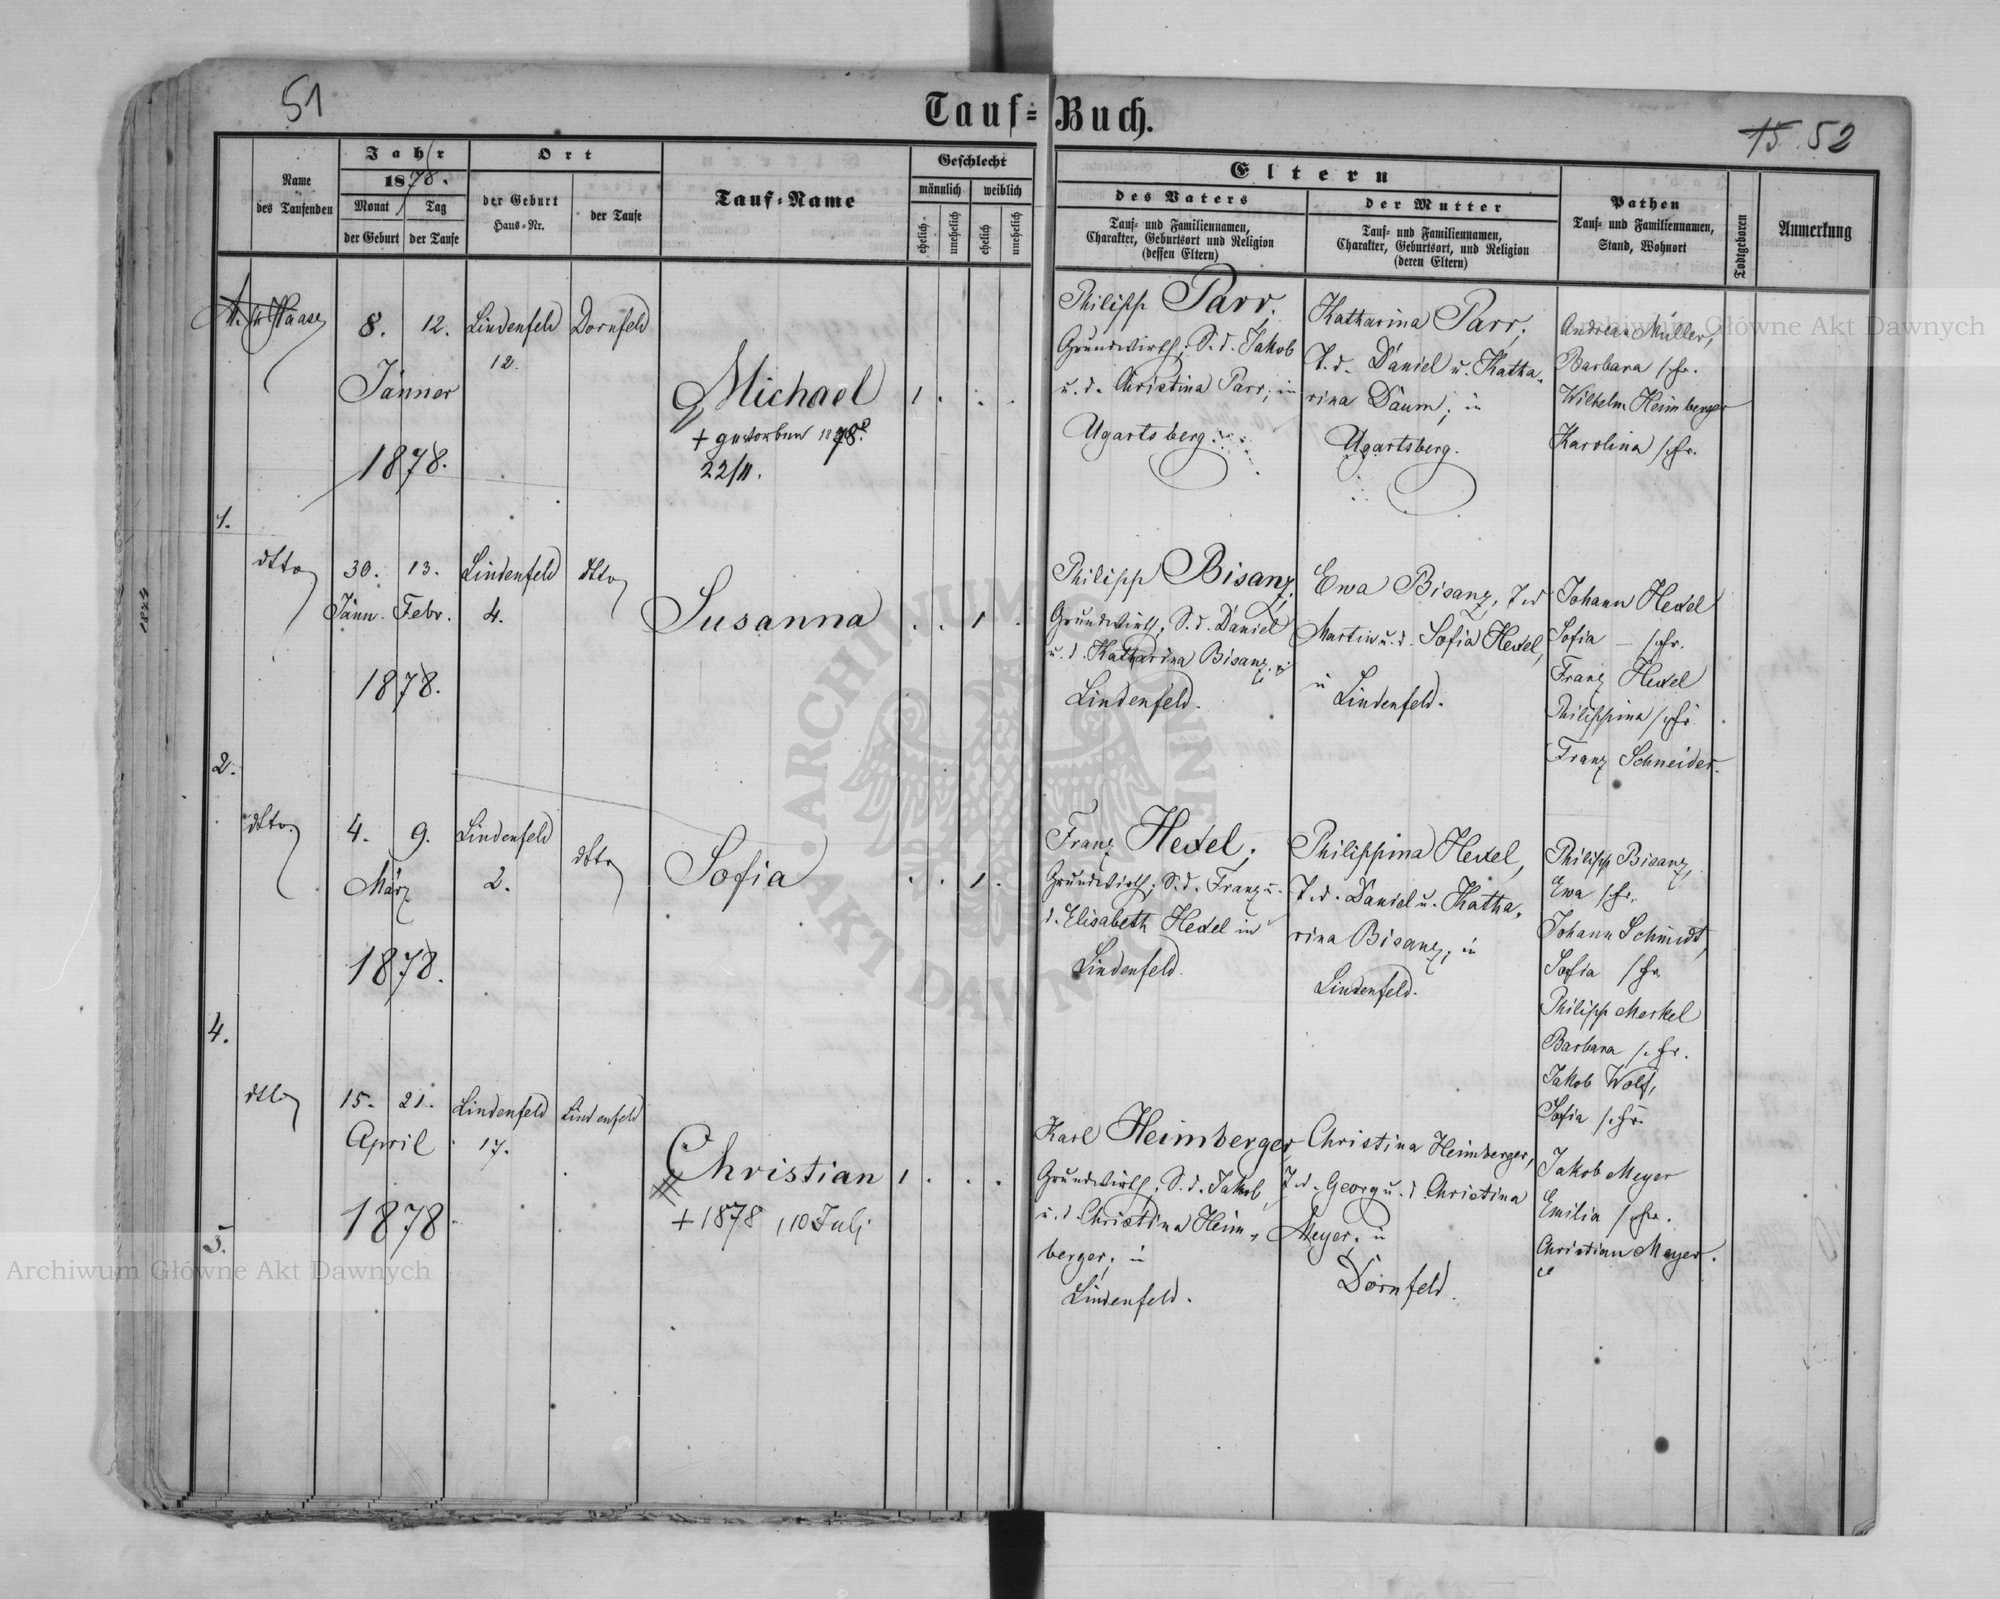 51
Tauf-Buch.
15. 52
Name
des Taufenden
Jahr
1878.
Monat
der Geburt
Tag
der Taufe
Ort
der Geburt
Haus-Nr.
der Taufe
Tauf-Name
Geschlecht
männlich
weiblich
ehelich
unehelich
ehelich
unehelich
Eltern
des Vaters
Tauf- und Familiennamen,
Charakter, Geburtsort und Religion
(dessen Eltern)
der Mutter
Tauf- und Familiennamen,
Charakter, Geburtsort, und Religion
(deren Eltern)
Pathen
Tauf- und Familiennamen,
Stand, Wohnort
Todtgeboren
Anmerkung
Haase
8. 12.
Jänner
1878.
Lindenfeld
12.
Dornfeld
Michael
+ gestorben 1878.
22/11.
1 . . .
Philipp Parr,
Grundwirth, S. d. Jakob
u. d. Christina Parr, in
Ugartsberg.
Katharina Parr,
T. d. Daniel u. Katha-
rina Daum, in
Ugartsberg.
Andreas Müller,
Barbara s. Fr.
Wilhelm Heimberger
Karolina s. Fr.
1.
dtto
30. 13.
Jänn. Febr.
1878.
Lindenfeld
4.
dtto
Susanna
. . 1 .
Philipp Bisanz,
Grundwirth, S. d. Daniel
u. d. Katharina Bisanz, in
Lindenfeld.
Ewa Bisanz, T. d
Martin u. d. Sofia Hexel,
in
Lindenfeld.
Johann Hexel
Sofia – s. Fr.
Franz Hexel
Philippina s. Fr.
Franz Schneider.
2.
dtto.
4. 9.
März
1878.
Lindenfeld
2.
dtto
Sofia
. . 1 .
Franz Hexel,
Grundwirth, S. d. Franz u.
d. Elisabeth Hexel in
Lindenfeld.
Philippina Hexel,
T. d. Daniel u. Katha-
rina Bisanz, in
Lindenfeld.
Philipp Bisanz,
Ewa s. Fr.
Johann Schmidt
Sofia s. Fr.
Philipp Merkel
Barbara s. Fr.
Jakob Wolf,
Sofia s. Fr.
4.
dtto
15. 21.
April
1878.
Lindenfeld
17.
Lindenfeld
Christian
+ 1878, 10 Juli
1 . . .
Karl Heimberger,
Grundwirth, S. d. Jakob,
u. d. Christina Heim-
berger, in
Lindenfeld.
Christina Heimberger,
T. d. Georg u. d. Christina
Meyer, in
Dornfeld.
Jakob Meyer
Emilia s. Fr.
Christian Meyer.
5.
1889
Archiwum Główne Akt Dawnych
Archiwum Główne Akt Dawnych
ARCHIWUM GŁÓWNE AKT DAWNYCH